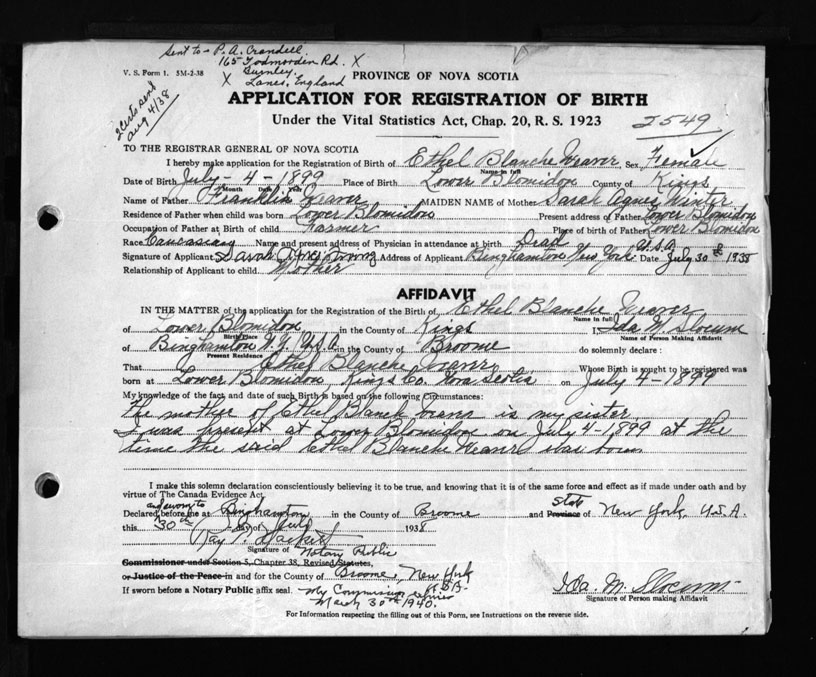 Sent to - P. A. Crandell
165 Todmorden Rd. X
Burnley
X Lancs, England
V. S. Form 1. 5M-2-38
2 Certs sent
Aug 4/38
PROVINCE OF NOVA SCOTIA
APPLICATION FOR REGISTRATION OF BIRTH
Under the Vital Statistics Act, Chap. 20, R. S. 1923
2549
TO THE REGISTRAR GENERAL OF NOVA SCOTIA
I hereby make application for the Registration of Birth of Ethel Blanche Weaver Sex Female
Name in full
Date of Birth July - 4 - 1899 Place of Birth Lower Blomidon County of Kings
Month Date Year
Name of Father Franklin Weaver MAIDEN NAME of Mother Sarah Agnes Winter
Residence of Father when child was born Lower Blomidon Present address of Father Lower Blomidon
Occupation of Father at Birth of child Farmer Place of birth of Father Lower Blomidon
Race Caucasian Name and present address of Physician in attendance at birth Dead U.S.A.
Signature of Applicant Sarah Agnes Address of Applicant Binghamton New York Date July 30 1938
Relationship of Applicant to child Mother
AFFIDAVIT
IN THE MATTER of the application for the Registration of the Birth of Ethel Blanche Weaver
Name in full
of Lower Blomidon in the County of Kings I, Ida M. Slocum
Birth Place Name of Person Making Affidavit
of Binghamton N.Y. U.S.A. in the County of Broome do solemnly declare :
Present Residence
That Ethel Blanche Weaver Whose Birth is sought to be registered was
born at Lower Blomidon, Kings Co. Nova Scotia on July 4-1899
My knowledge of the fact and date of such Birth is based on the following Circumstances:
The mother of Ethel Blanch is my sister
I was present at Lower Blomidon on July 4-1899 at the
time the said Ethel Blanche was born
I make this solemn declaration conscientiously believing it to be true, and knowing that it is of the same force and effect as if made under oath and by
virtue of The Canada Evidence Act.
and sworn to
Declared before me at Binghamton in the County of Broome and Province State of New York, U.S.A.
this 30th day of July 1938
Ray
Signature of Notary Public
Commissioner under Section 5, Chapter 38, Revised Statutes,
or Justice of the Peace in and for the County of Broome, New York
U.S.A.
If sworn before a Notary Public affix seal. My Commission expires
March 30th 1940.
Ida M. Slocum
Signature of Person making Affidavit
For Information respecting the filling out of this Form, see Instructions on the reverse side.